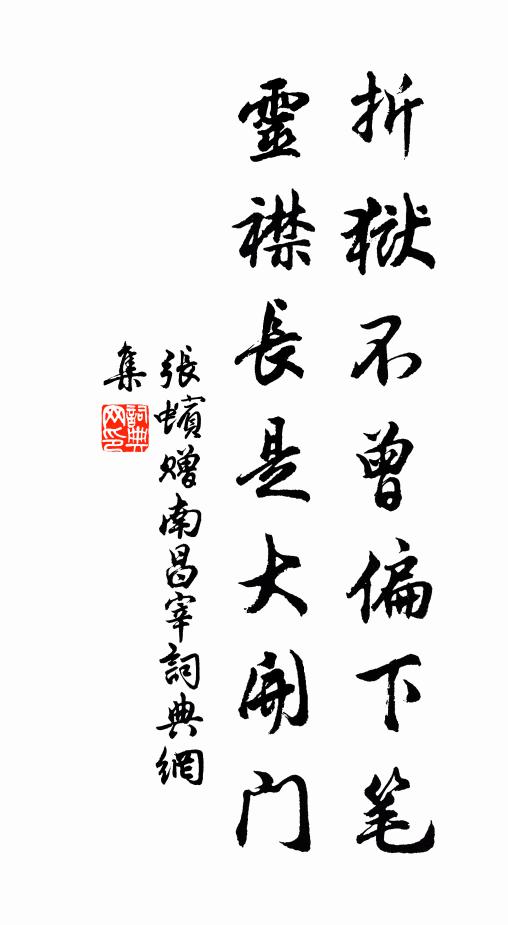 折獄不曾偏下笔
靈襟長是大開門
張蠙赠南昌宰詞典網
集
詞典
网印